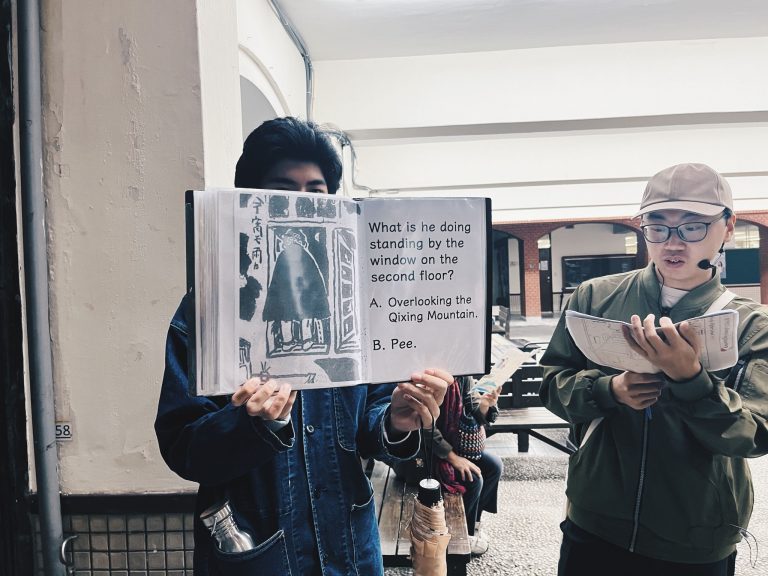 What is he doing
standing by the
window on the
second floor?
A. Overlooking the
Qixing Mountain.
B. Pee.
58